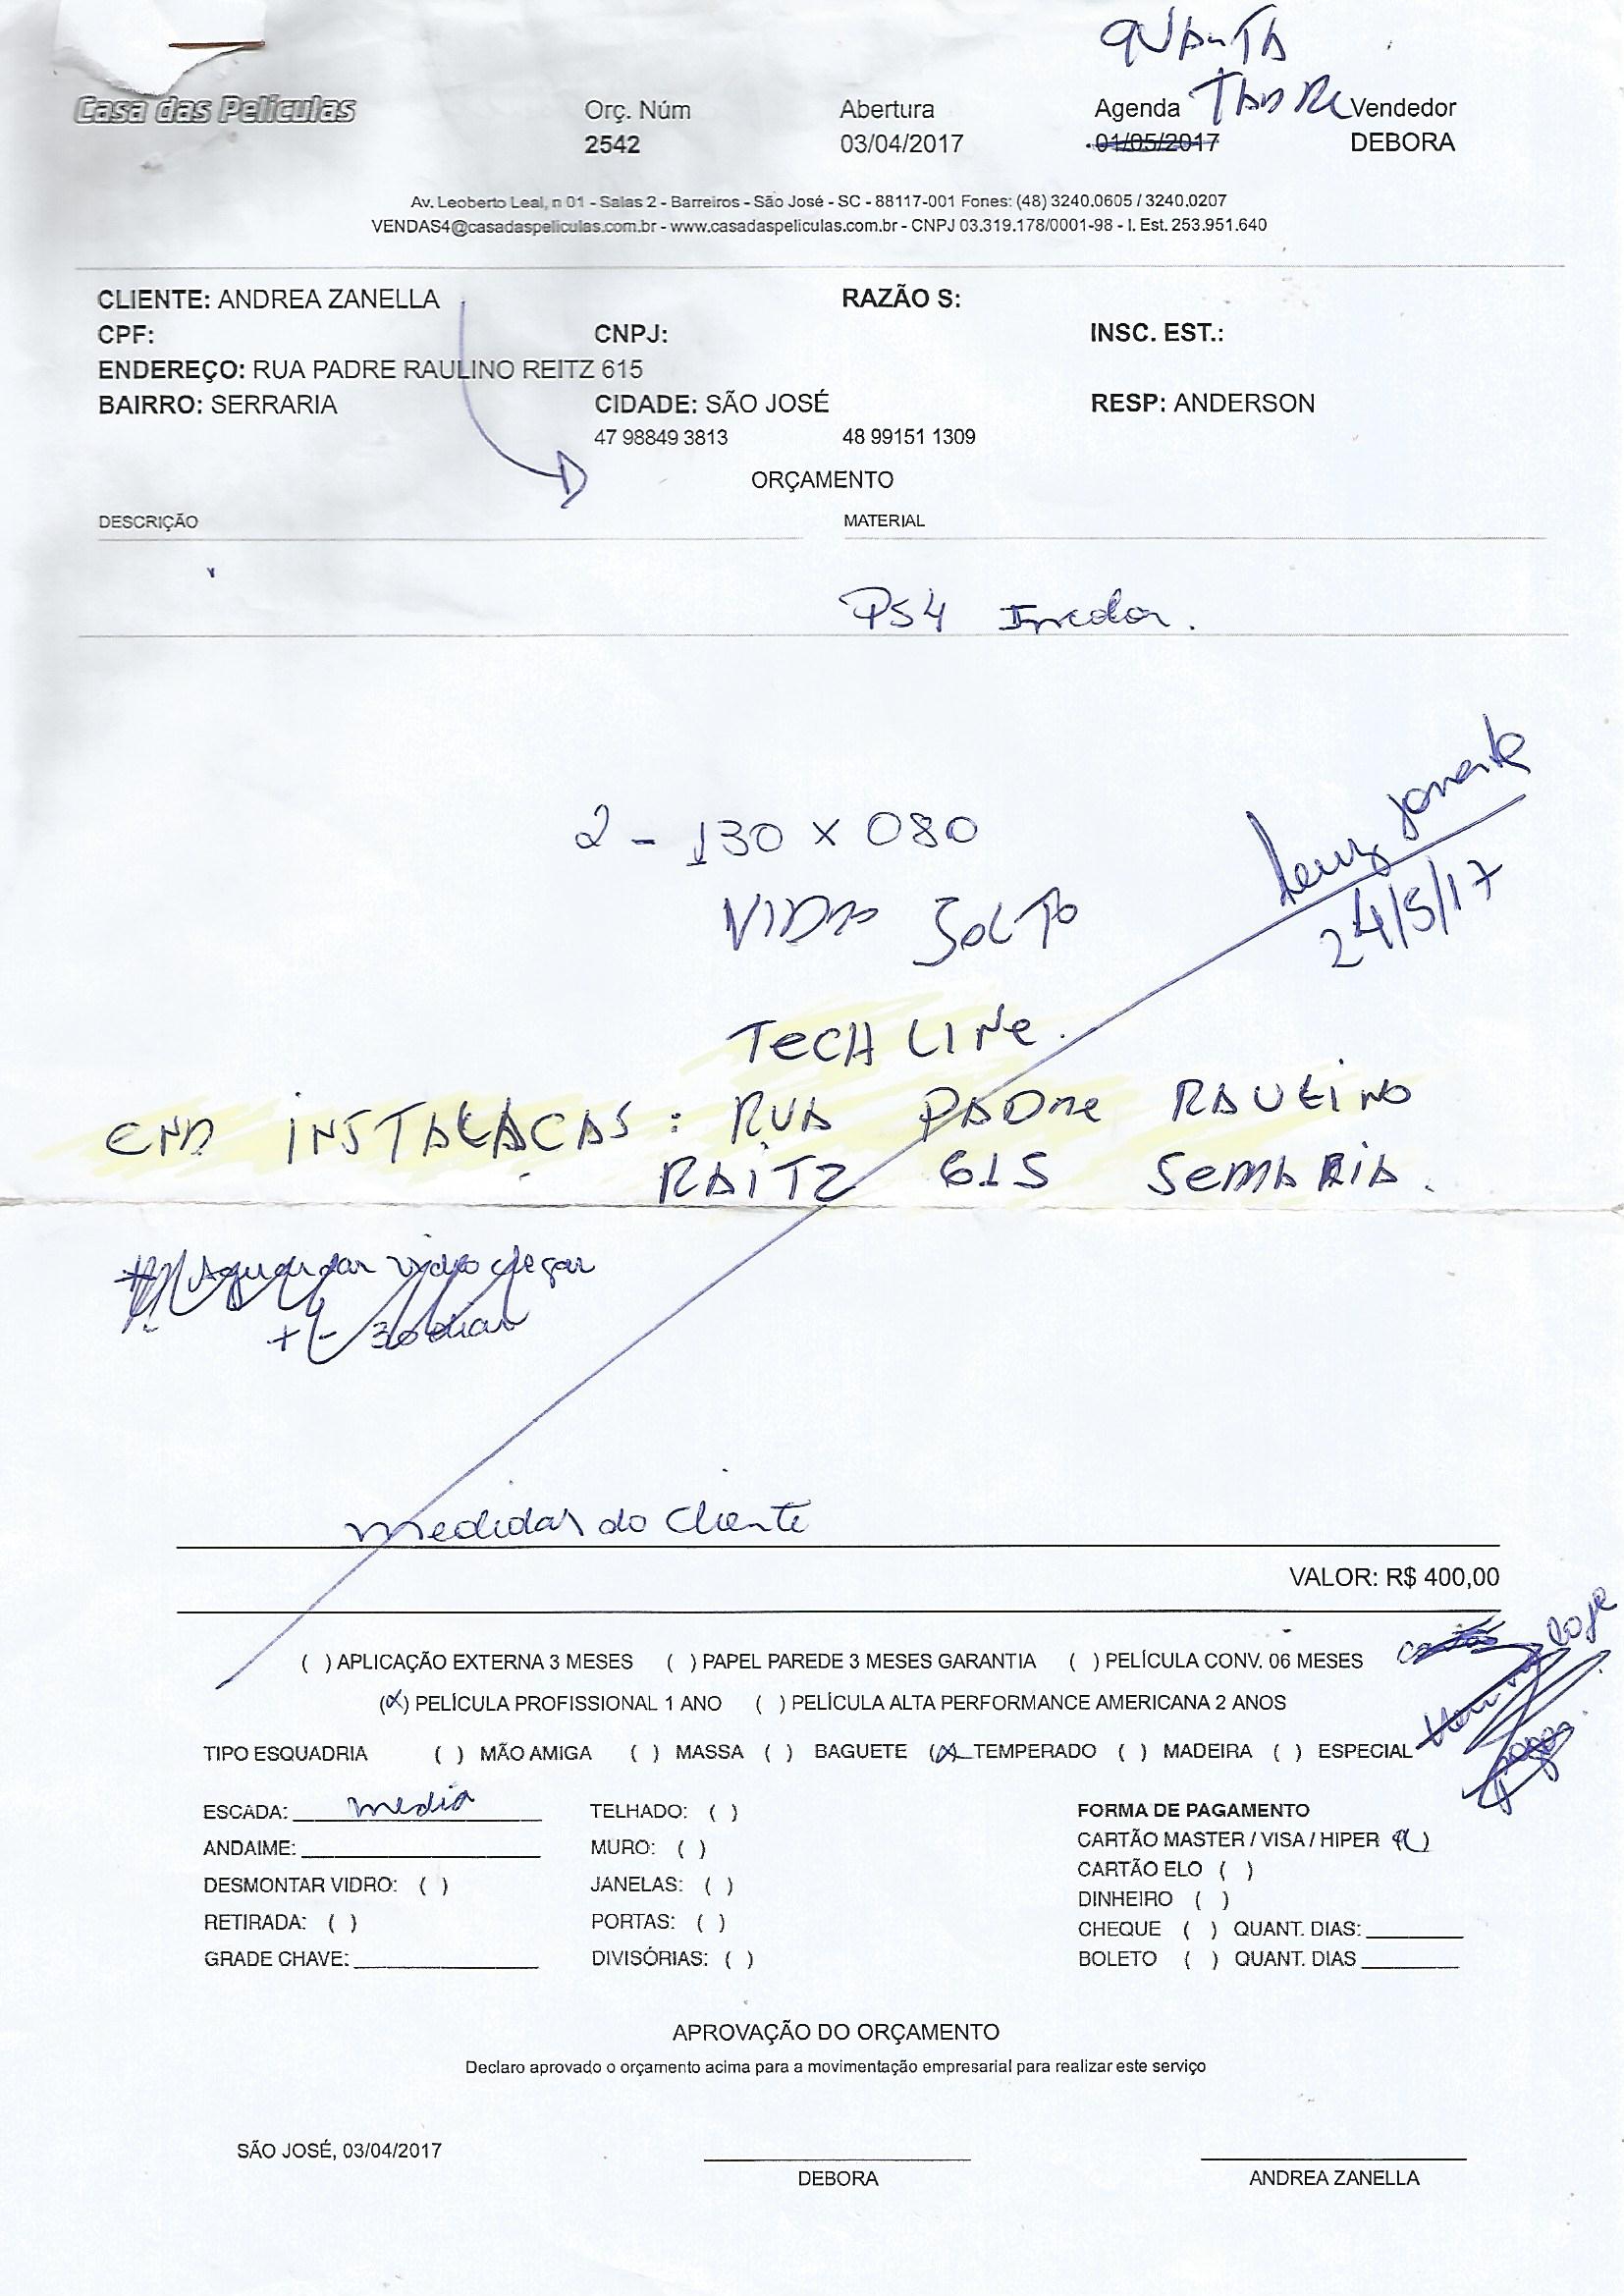 QUARTA
TARDE
Casa das Películas
Orç. Núm Abertura Agenda Vendedor
2542 03/04/2017 01/05/2017 DEBORA
Av. Leoberto Leal, n 01 - Salas 2 - Barreiros - São José - SC - 88117-001 Fones: (48) 3240.0605 / 3240.0207
VENDAS4@casadaspeliculas.com.br - www.casadaspeliculas.com.br - CNPJ 03.319.178/0001-98 - I. Est. 253.951.640
CLIENTE: ANDREA ZANELLA RAZÃO S:
CPF: CNPJ: INSC. EST.:
ENDEREÇO: RUA PADRE RAULINO REITZ 615
BAIRRO: SERRARIA CIDADE: SÃO JOSÉ RESP: ANDERSON
47 98849 3813 48 99151 1309
ORÇAMENTO
DESCRIÇÃO MATERIAL
PS4 Incolor.
2 - 130 x 080
VIDRO SOLTO
24/5/17
TECH LINE.
END INSTALAÇAS: RUA PADRE RAULINO
RAITZ 615 SERRARIA.
Aguardar vidro chegar
+/- 30 dias
medidas do cliente
VALOR: R$ 400,00
( ) APLICAÇÃO EXTERNA 3 MESES ( ) PAPEL PAREDE 3 MESES GARANTIA ( ) PELÍCULA CONV. 06 MESES
(X) PELÍCULA PROFISSIONAL 1 ANO ( ) PELÍCULA ALTA PERFORMANCE AMERICANA 2 ANOS
loja
TIPO ESQUADRIA ( ) MÃO AMIGA ( ) MASSA ( ) BAGUETE (X) TEMPERADO ( ) MADEIRA ( ) ESPECIAL
ESCADA: media TELHADO: ( ) FORMA DE PAGAMENTO
ANDAIME: MURO: ( ) CARTÃO MASTER / VISA / HIPER (X)
DESMONTAR VIDRO: ( ) JANELAS: ( ) CARTÃO ELO ( )
RETIRADA: ( ) PORTAS: ( ) DINHEIRO ( )
GRADE CHAVE: DIVISÓRIAS: ( ) CHEQUE ( ) QUANT. DIAS:
BOLETO ( ) QUANT. DIAS
APROVAÇÃO DO ORÇAMENTO
Declaro aprovado o orçamento acima para a movimentação empresarial para realizar este serviço
SÃO JOSÉ, 03/04/2017
DEBORA ANDREA ZANELLA